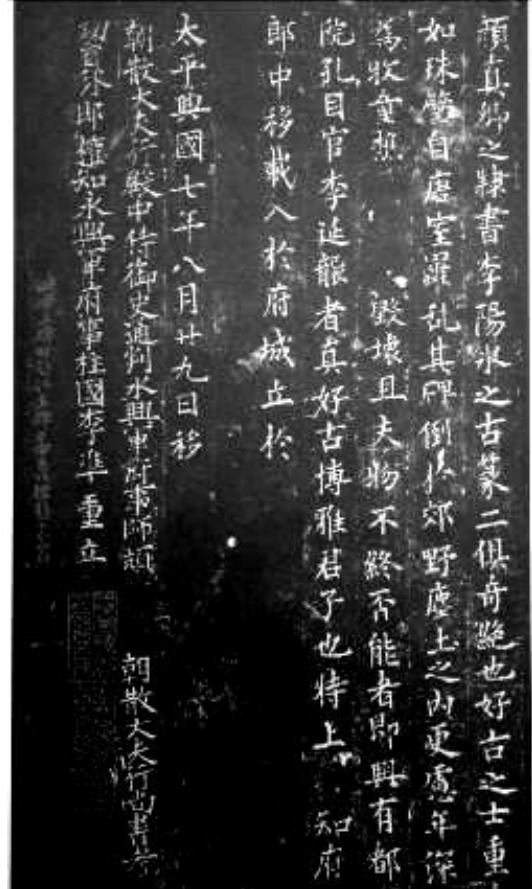 顔真卿之隸書李陽冰之古篆二俱奇絶也好古之士重
如珠璧自唐室罹乱其碑倒於郊野塵土之內更慮年深
爲牧童 毀壞且夫物不終否能者即興有都
院孔目官李延襲者真好古博雅君子也特上 知府
郎中移載入於府城立於
太平興國七年八月廿九日移
朝散大夫行殿中侍御史通判永興軍府事師頏 朝散大夫行尚書考
功員外郎權知永興軍府事柱國李準重立